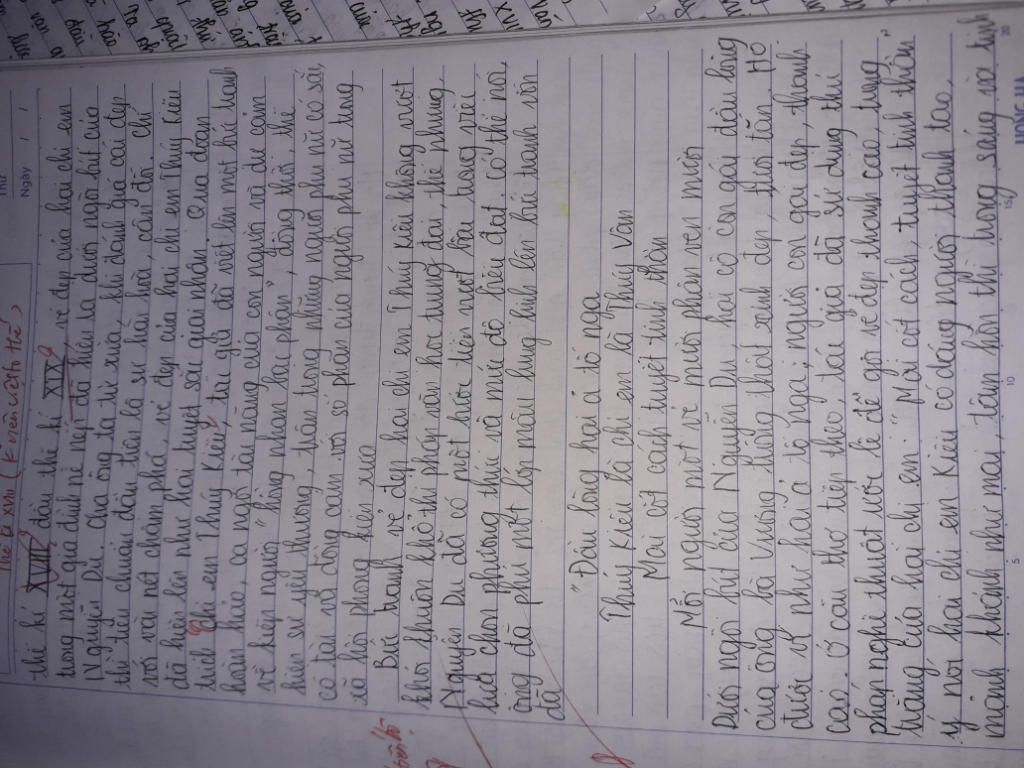 Thứ
Ngày / /
Thế kỉ XVIII (K nên viết thế)
thế kỉ XVIII đầu thế kỉ XIX, vẻ đẹp của hai chị em
trong một gia đình nề nếp đã hiện ra dưới ngòi bút của
Nguyễn Du. cha ông ta từ xưa khi đánh giá cái đẹp
thì tiêu chuẩn đầu tiên là sự hài hòa, cân đối. Chỉ
với vài nét chấm phá, vẻ đẹp của hai chị em Thúy Kiều
đã hiện lên như hai tuyệt sắc giai nhân. Qua đoạn
trích Chị em Thúy Kiều, tác giả đã viết lên một bức tranh
hoàn hảo, ca ngợi tài năng của con người và dự cảm
về kiếp người "hồng nhan bạc phận", đồng thời thể
hiện sự yêu thương, trân trọng những người phụ nữ có sắc,
có tài và đồng cảm với số phận của người phụ nữ trong
xã hội phong kiến xưa
Bức tranh vẻ đẹp hai chị em Thúy Kiều không vượt
khỏi khuôn khổ thi pháp văn học trung đại, thế nhưng
Nguyễn Du đã có một bước tiến vượt bậc trong việc
lựa chọn phương thức và mức độ biểu đạt, có thể nói,
ông đã phú một lớp màu lung linh lên bức tranh vốn
đã
"Đầu lòng hai ả tố nga
Thúy Kiều là chị em là Thúy Vân
Mai cốt cách tuyết tinh thần
Mỗi người một vẻ mười phân vẹn mười
Dưới ngòi bút của Nguyễn Du, hai cô con gái đầu lòng
của ông bà Vương không khác xinh đẹp, thời tân. Họ
được ví như hai ả tố nga, người con gái đẹp, thanh
cao. Ở câu thơ tiếp theo, tác giả đã sử dụng thủ
pháp nghệ thuật ước lệ để gợi vẻ đẹp thanh cao, trong
trắng của hai chị em: "Mai cốt cách, tuyết tinh thần"
ý nói hai chị em Kiều có dáng người thanh tao,
mảnh khảnh như mai, tâm hồn thì trong sáng và tinh
5
10
15
20